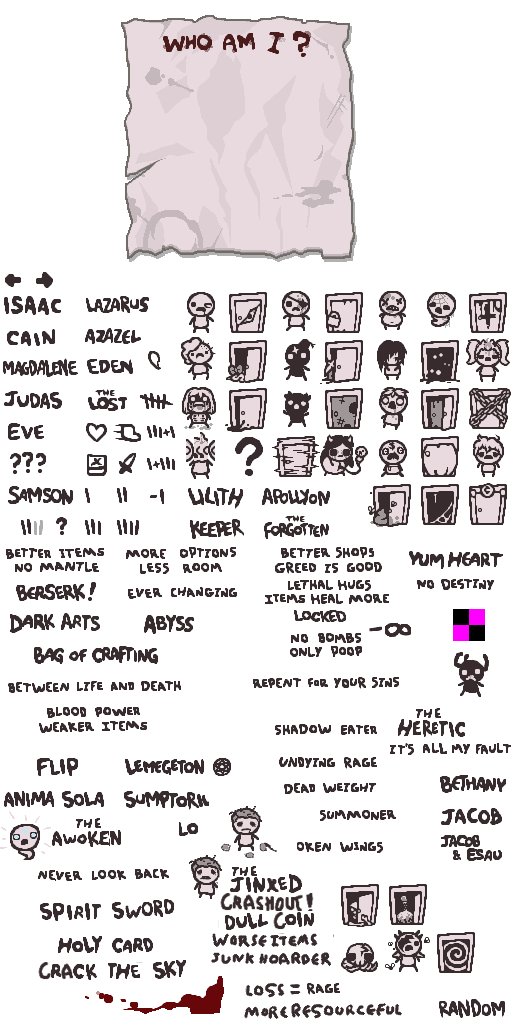 WHO AM I?
ISAAC
LAZARUS
CAIN
AZAZEL
MAGDALENE
EDEN
JUDAS
THE
LOST
EVE
???
?
SAMSON
LILITH
APOLLYON
?
KEEPER
THE
FORGOTTEN
BETTER ITEMS
NO MANTLE
MORE OPTIONS
LESS ROOM
BETTER SHOPS
GREED IS GOOD
YUM HEART
BERSERK!
EVER CHANGING
LETHAL HUGS
ITEMS HEAL MORE
NO DESTINY
DARK ARTS
ABYSS
LOCKED
NO BOMBS
ONLY POOP
-∞
BAG OF CRAFTING
BETWEEN LIFE AND DEATH
REPENT FOR YOUR SINS
BLOOD POWER
WEAKER ITEMS
SHADOW EATER
THE
HERETIC
IT'S ALL MY FAULT
FLIP
LEMEGETON
UNDYING RAGE
DEAD WEIGHT
BETHANY
ANIMA SOLA
SUMPTORIUM
SUMMONER
JACOB
THE
AWOKEN
LO
OKEN WINGS
JACOB
& ESAU
NEVER LOOK BACK
THE
JINXED
CRASHOUT!
DULL COIN
SPIRIT SWORD
WORSE ITEMS
JUNK HOARDER
HOLY CARD
CRACK THE SKY
LOSS = RAGE
MORE RESOURCEFUL
RANDOM